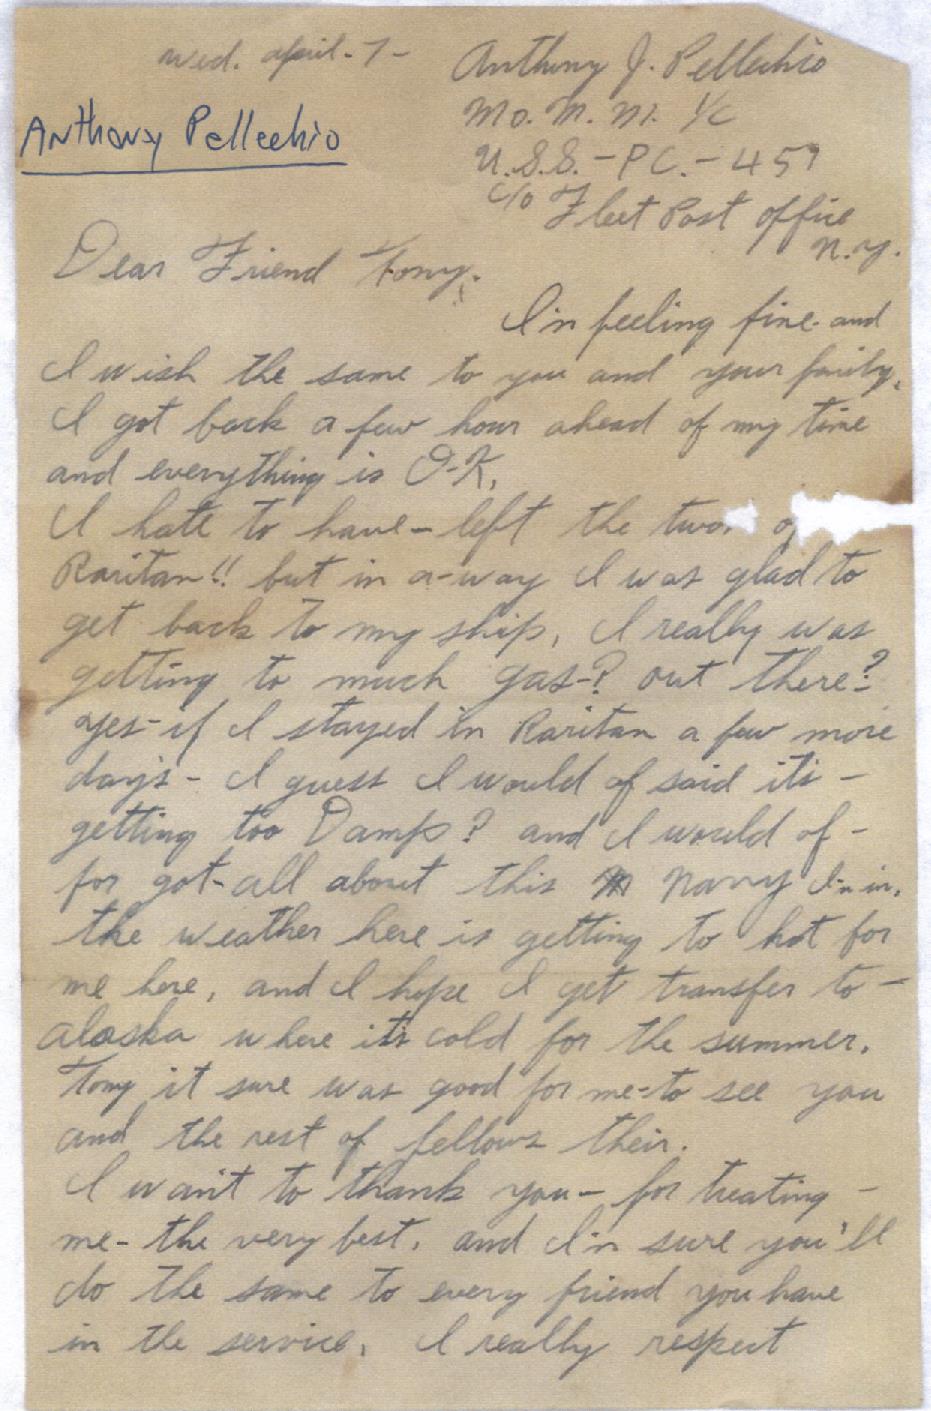 Wed. April-7-
Anthony J. Pellechio
Mo. M. M. 1/c
Anthony Pellechio
U.S.S.-PC.-459
c/o Fleet Post office
N.Y.
Dear Friend Tony.
I'm feeling fine and
I wish the same to you and your family.
I got back a few hour ahead of my time
and everything is O-K.
I hate to have-left the
Raritan!! but in a-way I was glad to
get back to my ship, I really was
getting to much gas-? out there?
yes-if I stayed in Raritan a few more
day's- I guess I would of said it's-
getting too Damp? and I would of-
for got-all about this Navy I'm in.
the weather here is getting to hot for
me here, and I hope I get transfer to-
alaska where it's cold for the summer.
Tony it sure was good for me-to see you
and the rest of fellows their.
I want to thank you- for treating-
me- the very best. and I'm sure you'll
do the same to every friend you have
in the service. I really respect